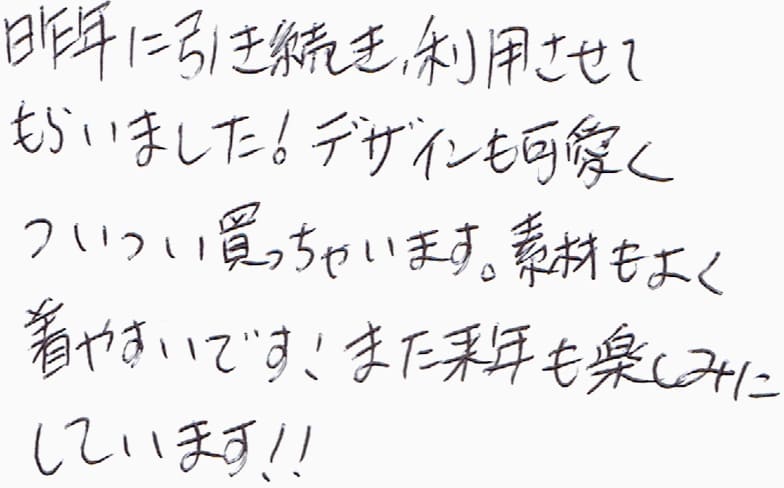 昨年に引き続き、利用させて
もらいました!デザインも可愛く
ついつい買っちゃいます。素材もよく
着やすいです!また来年も楽しみに
しています!!